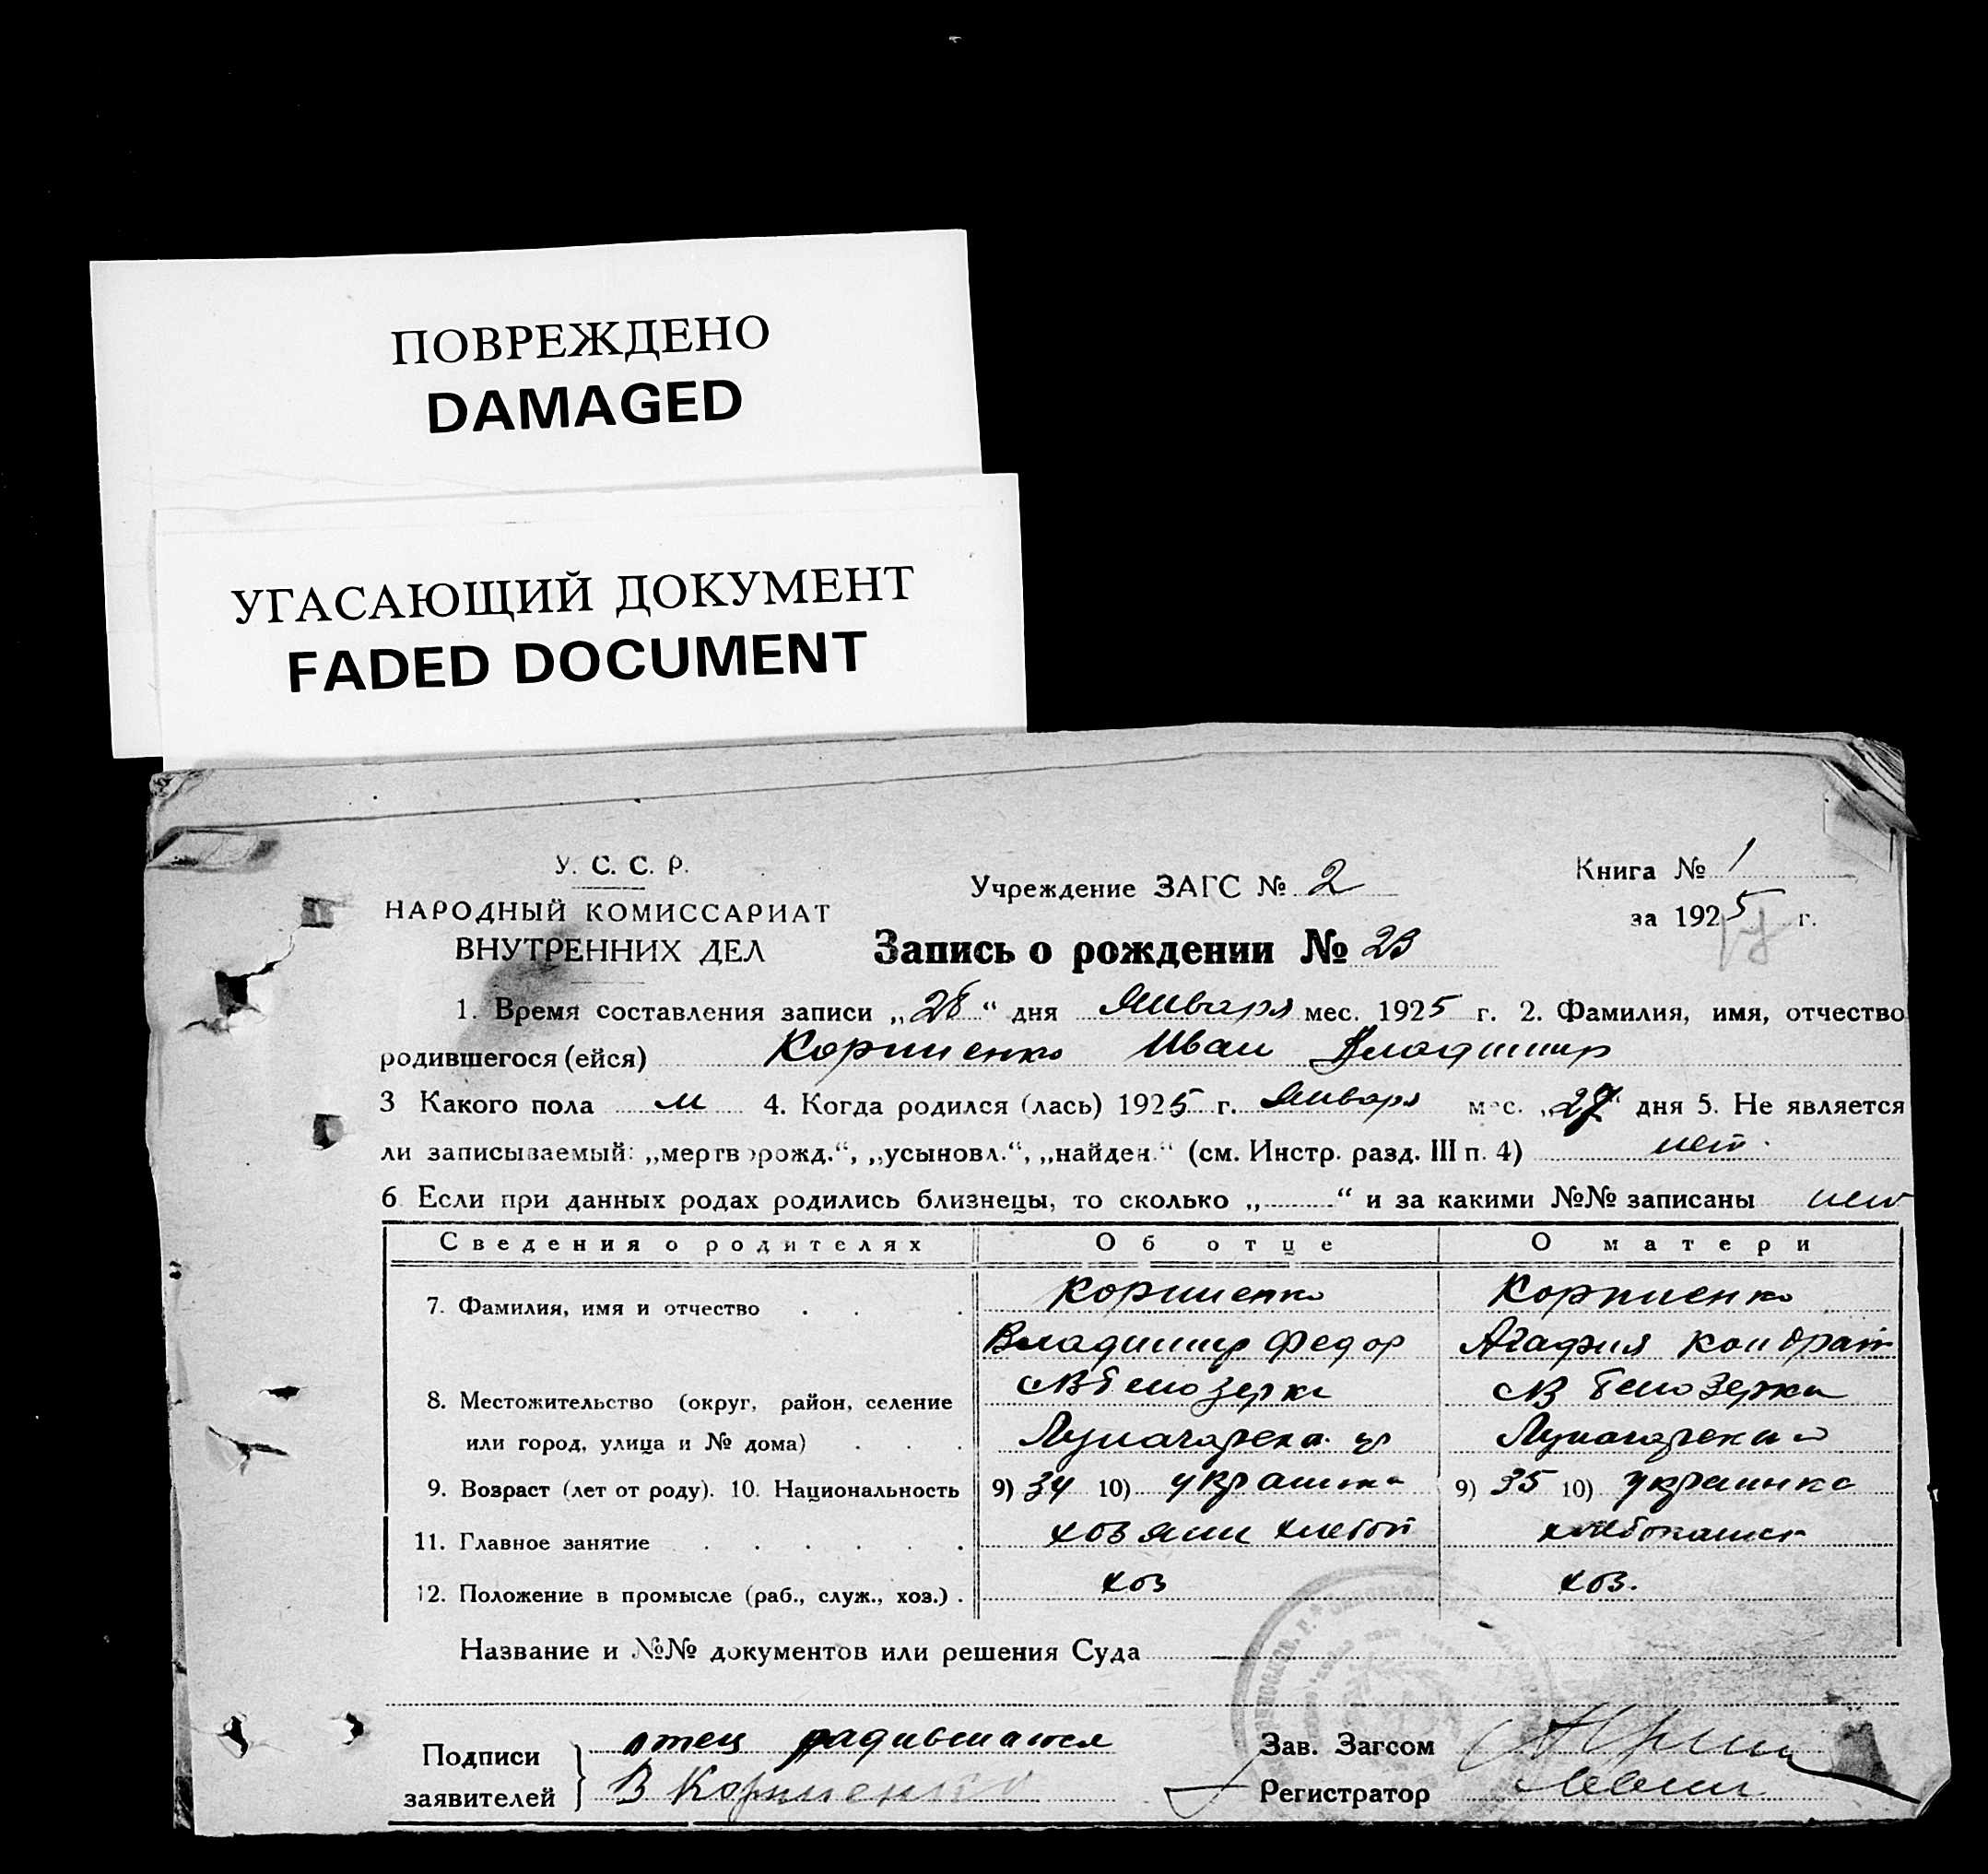 ПОВРЕЖДЕНО
DAMAGED
УГАСАЮЩИЙ ДОКУМЕНТ
FADED DOCUMENT
У. С. С. Р.
НАРОДНЫЙ КОМИССАРИАТ
ВНУТРЕННИХ ДЕЛ
Учреждение ЗАГС № 2
Книга № 1
за 1925 г.
Запись о рождении № 23
1. Время составления записи „28“ дня Января мес. 1925 г. 2. Фамилия, имя, отчество
родившегося (ейся) Корниенко Иван Владимир
3 Какого пола м 4. Когда родился (лась) 1925 г. Января мес. „27“ дня 5. Не является
ли записываемый: „мертворожд.“, „усыновл.“, „найден.“ (см. Инстр. разд. III п. 4) нет
6 Если при данных родах родились близнецы, то сколько „......“ и за какими №№ записаны нет
Сведения о родителях Об отце О матери
7. Фамилия, имя и отчество Корниенко Корниенко
Владимир Федор Агафия Кондрат
8. Местожительство (округ, район, селение Белозерка Белозерка
или город, улица и № дома)
9. Возраст (лет от роду). 10. Национальность 9) 34 10) 9) 35 10) украинка
11. Главное занятие хозяин хлебоп
12. Положение в промысле (раб., служ., хоз.) . хоз хоз.
Название и №№ документов или решения Суда
Подписи заявителей отец
В Корниенко
Зав. Загсом
Регистратор